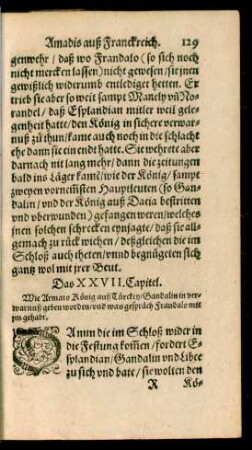 Amadis auß Franckreich. 129
genwehr / daß wo Frandalo (so sich noch
nicht mercken lassen) nicht gewesen / sie jnen
gewißlich widerumb entlediget hetten. Er
trieb sie aber so weit sampt Manely vñ No-
randel / daß Esplandian mitler weil gele-
genheit hatte / den König in sicherer verwar-
nuß zu thun / kame auch noch in die schlacht
ehe dann sie ein endt hatte. Sie wehrete aber
darnach nit lang mehr / dann die zeitungen
bald ins Läger kamē / wie der König / sampt
zweyen vornemsten Hauptleuten (so Gan-
dalin / vnd der König auß Dacia bestritten
vnd vberwunden) gefangen weren / welches
jnen solchen schrecken eynjagte / daß sie all-
gemach zu rück wichen / deßgleichen die im
Schloß auch theten / vnnd begnügeten sich
gantz wol mit jrer Beut.
Das XXVII. Capitel.
Wie Armato König auß Türckey / Gandalin in ver-
warnuß geben worden / vnd was gespräch Frandalo mit
jm gehabt.
Ann die im Schloß wider in
die Festung komen / fordert E-
splandian / Gandalin vnd Libee
zu sich vnd bate / sie wolten den
R Kö-